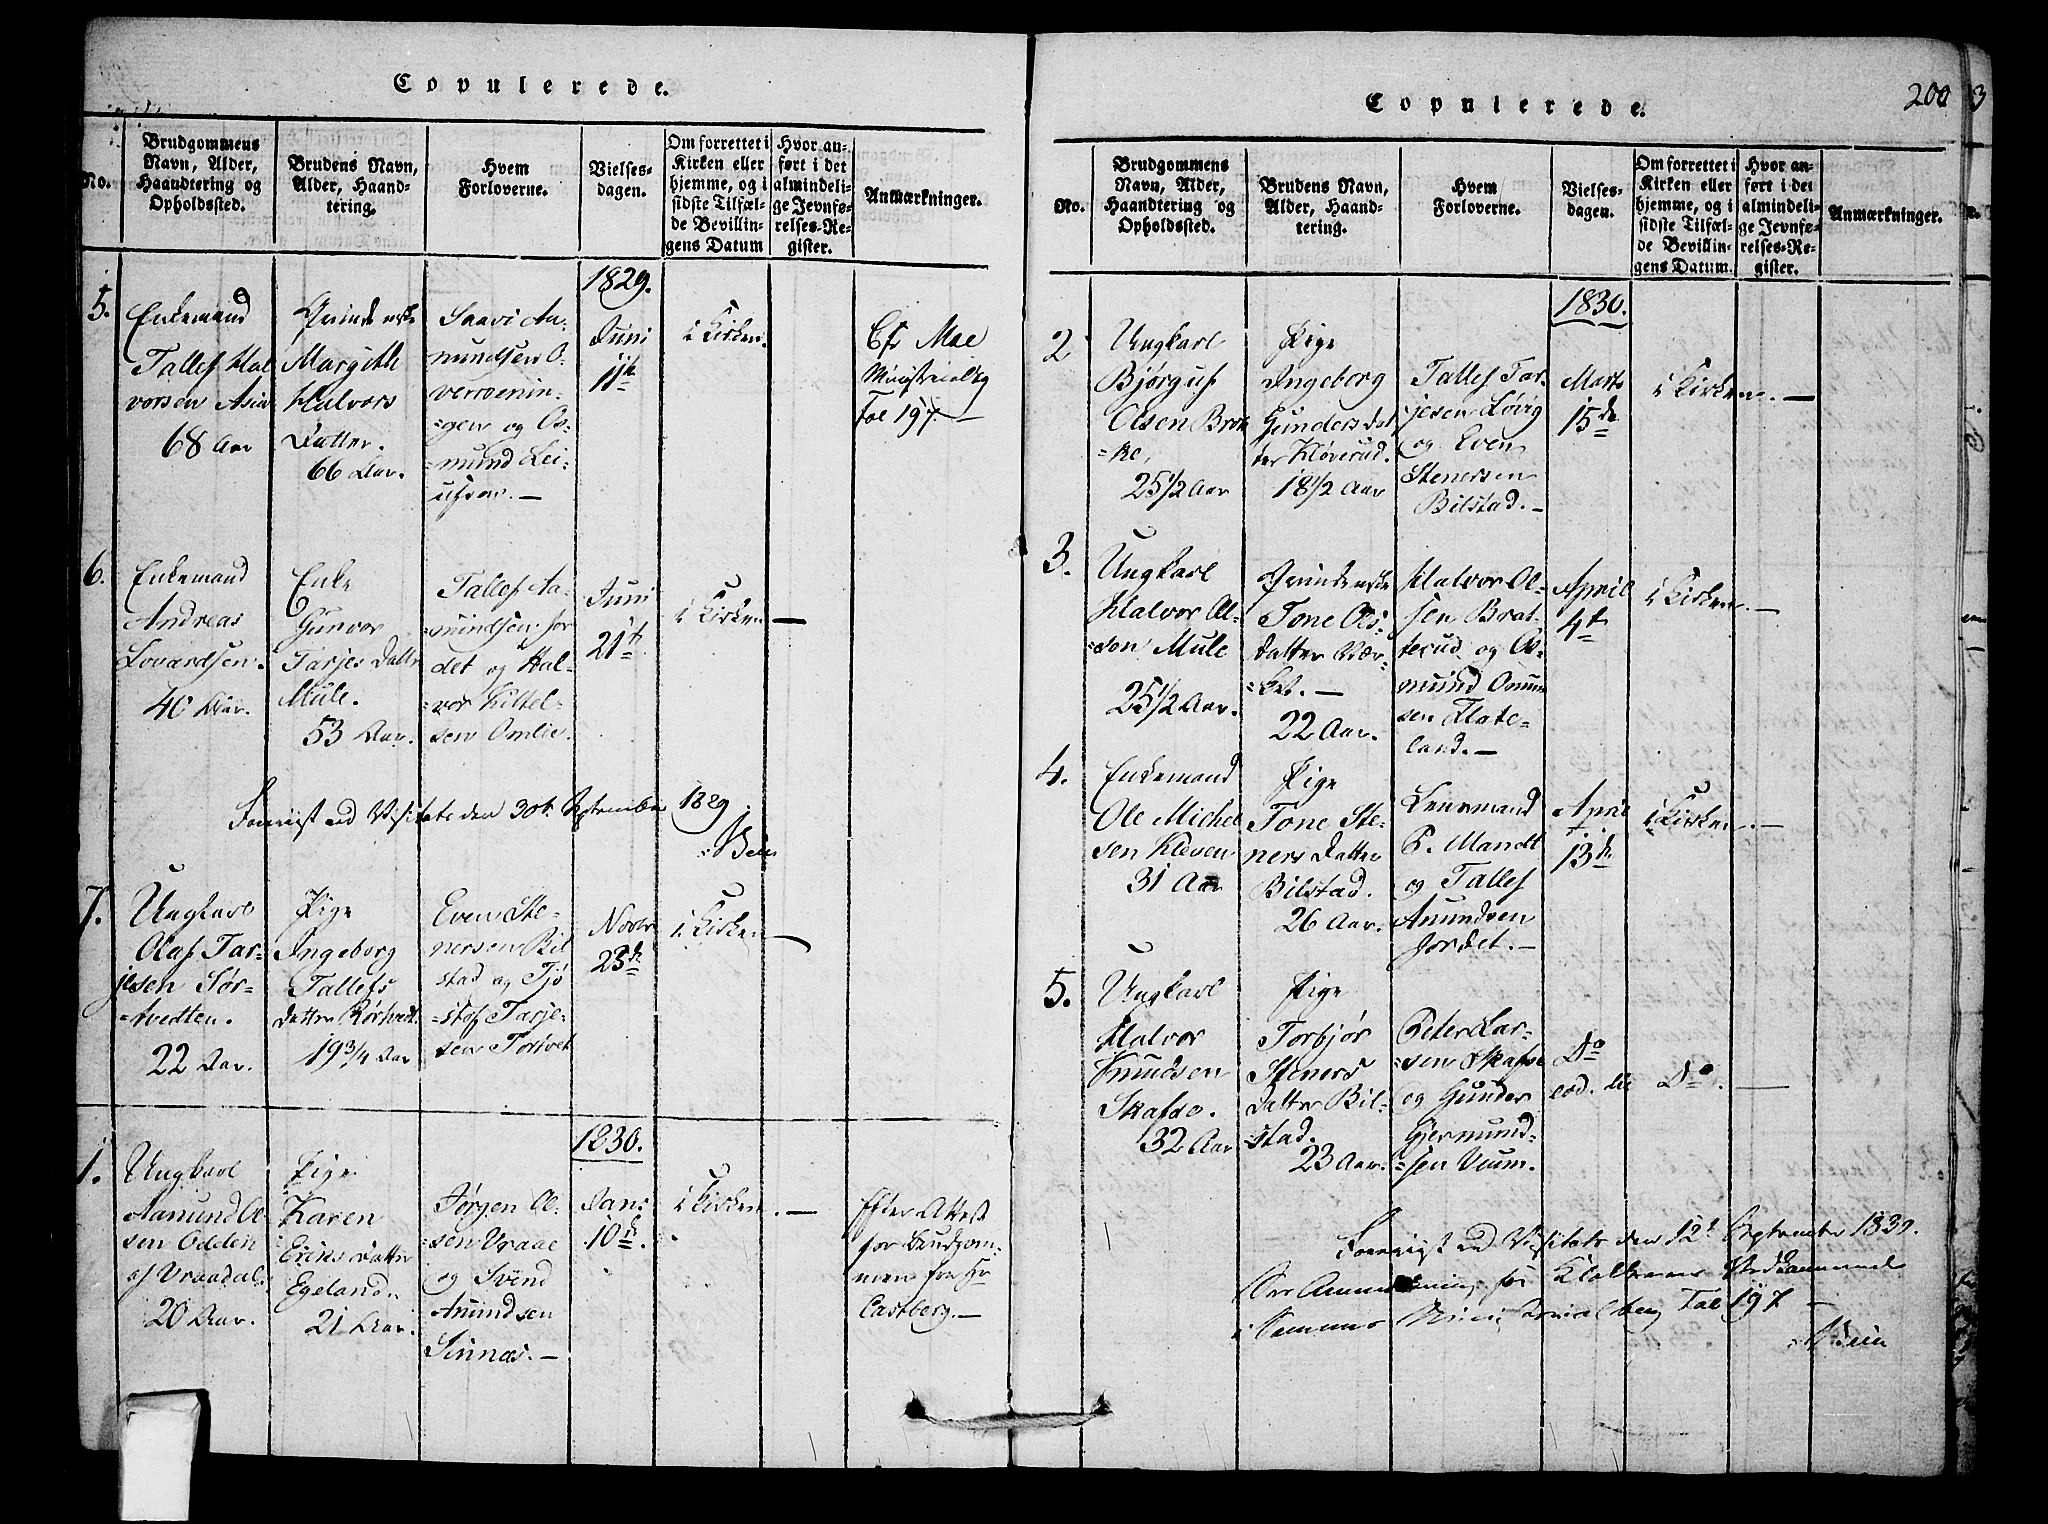 Copulerede.
No.
Brudgommens Navn, Alder, Haandtering og Opholdssted.
Brudens Navn, Alder, Haandtering.
Hvem Forloverne.
Vielsesdagen.
Om forrettet i Kirken eller hjemme, og i sidste Tilfælde Bevillingens Datum
Hvor anført i det almindelige Jevnførelses-Register.
Anmærkninger.
1829.
5.
Enkemand
Tallef Hal
vorsen Asia
68 Aar
Qvinde
Margith
Halvors
Datter.
66 Aar.
Saavi Aa-
mundsen O-
verroenin-
=gen og Os-
=mund Lei-
ufsen. —
Juni
11te
i Kirken.
Cfr Mae
Ministerialbog
Fol 197. —
6.
Enkemand
Andreas
Lovardsen.
40 Aar.
Enke
Gunvor
Tarjes Datter
Mule.
53 Aar.
Tallef Aa-
mundsen Jor
det og Hal-
=vor Kittel-
sen Omlie.
Juni
21te
i Kirken. —
Foreviist ved Visitats den 30te September 1829.
7.
Ungkarl
Olaf Tar-
jesen Tor-
=tvedten.
22 Aar.
Pige
Ingeborg
Tallefs
Datter Rørtvedt.
19 3/4 Aar
Even Ste-
nersen Bil
stad og Tjø
=stof Tarje-
sen Tortvet
Novbr
23de
i Kirken. —
1830.
1.
Ungkarl
Aamund Ol
sen Odden
af Vraadal.
20 Aar.
Pige
Karen
Eriks Datter
Egeland.
21 Aar.
Jørgen Ol-
=sen Vraae
og Svend
Amundsen
Sinnæs. —
Janr
10de
i Kirken. —
Efter Attest
for Brudgom-
men fra Hr
Castberg. —
Copulerede.
200
No.
Brudgommens Navn, Alder, Haandtering og Opholdssted.
Brudens Navn, Alder, Haandtering.
Hvem Forloverne.
Vielsesdagen.
Om forrettet i Kirken eller hjemme, og i sidste Tilfælde Bevillingens Datum.
Hvor anført i det almindelige Jevnførelses-Register.
Anmærkninger.
1830.
2
Ungkarl
Bjørguf
Olsen Brok
=ke,
25 1/2 Aar
Pige
Ingeborg
Gunders Dat
ter Kløverud.
18 1/2 Aar
Tallef Tar-
jesen Løvig
og Even
Stenersen
Bilstad. —
Marts
15de
i Kirken. —
3.
Ungkarl
Halvor Ol-
=sen Mule
25 1/2 Aar.
Qvinde
Tone Ols-
Datter
22 Aar.
Halvor Ol-
sen Brat-
terud og Os-
mund Omun
sen Flate-
land. —
April
4de
i Kirken. —
4.
Enkemand
Ole Michel
sen Kleven
31 Aar
Pige
Tone Ste-
ners Datter
Bilstad.
26 Aar.
Lensmand
P. Mandt
og Tallef
Anundsen
Jordet. —
April
13de
i Kirken. —
5.
Ungkarl
Halvor
Knudsen
Skafse.
32 Aar
Pige
Torbjør
Steners
Datter Bil-
=stad.
23 Aar.
Peter Lar-
sen Skafse
og Gunder
Gjermund-
=sen Vium.
Do
eod. die
Do. —
Foreviist ved Visitats den 12t September 1830.
for Klokkerens
i Samme Ministerialbog Fol 197 —